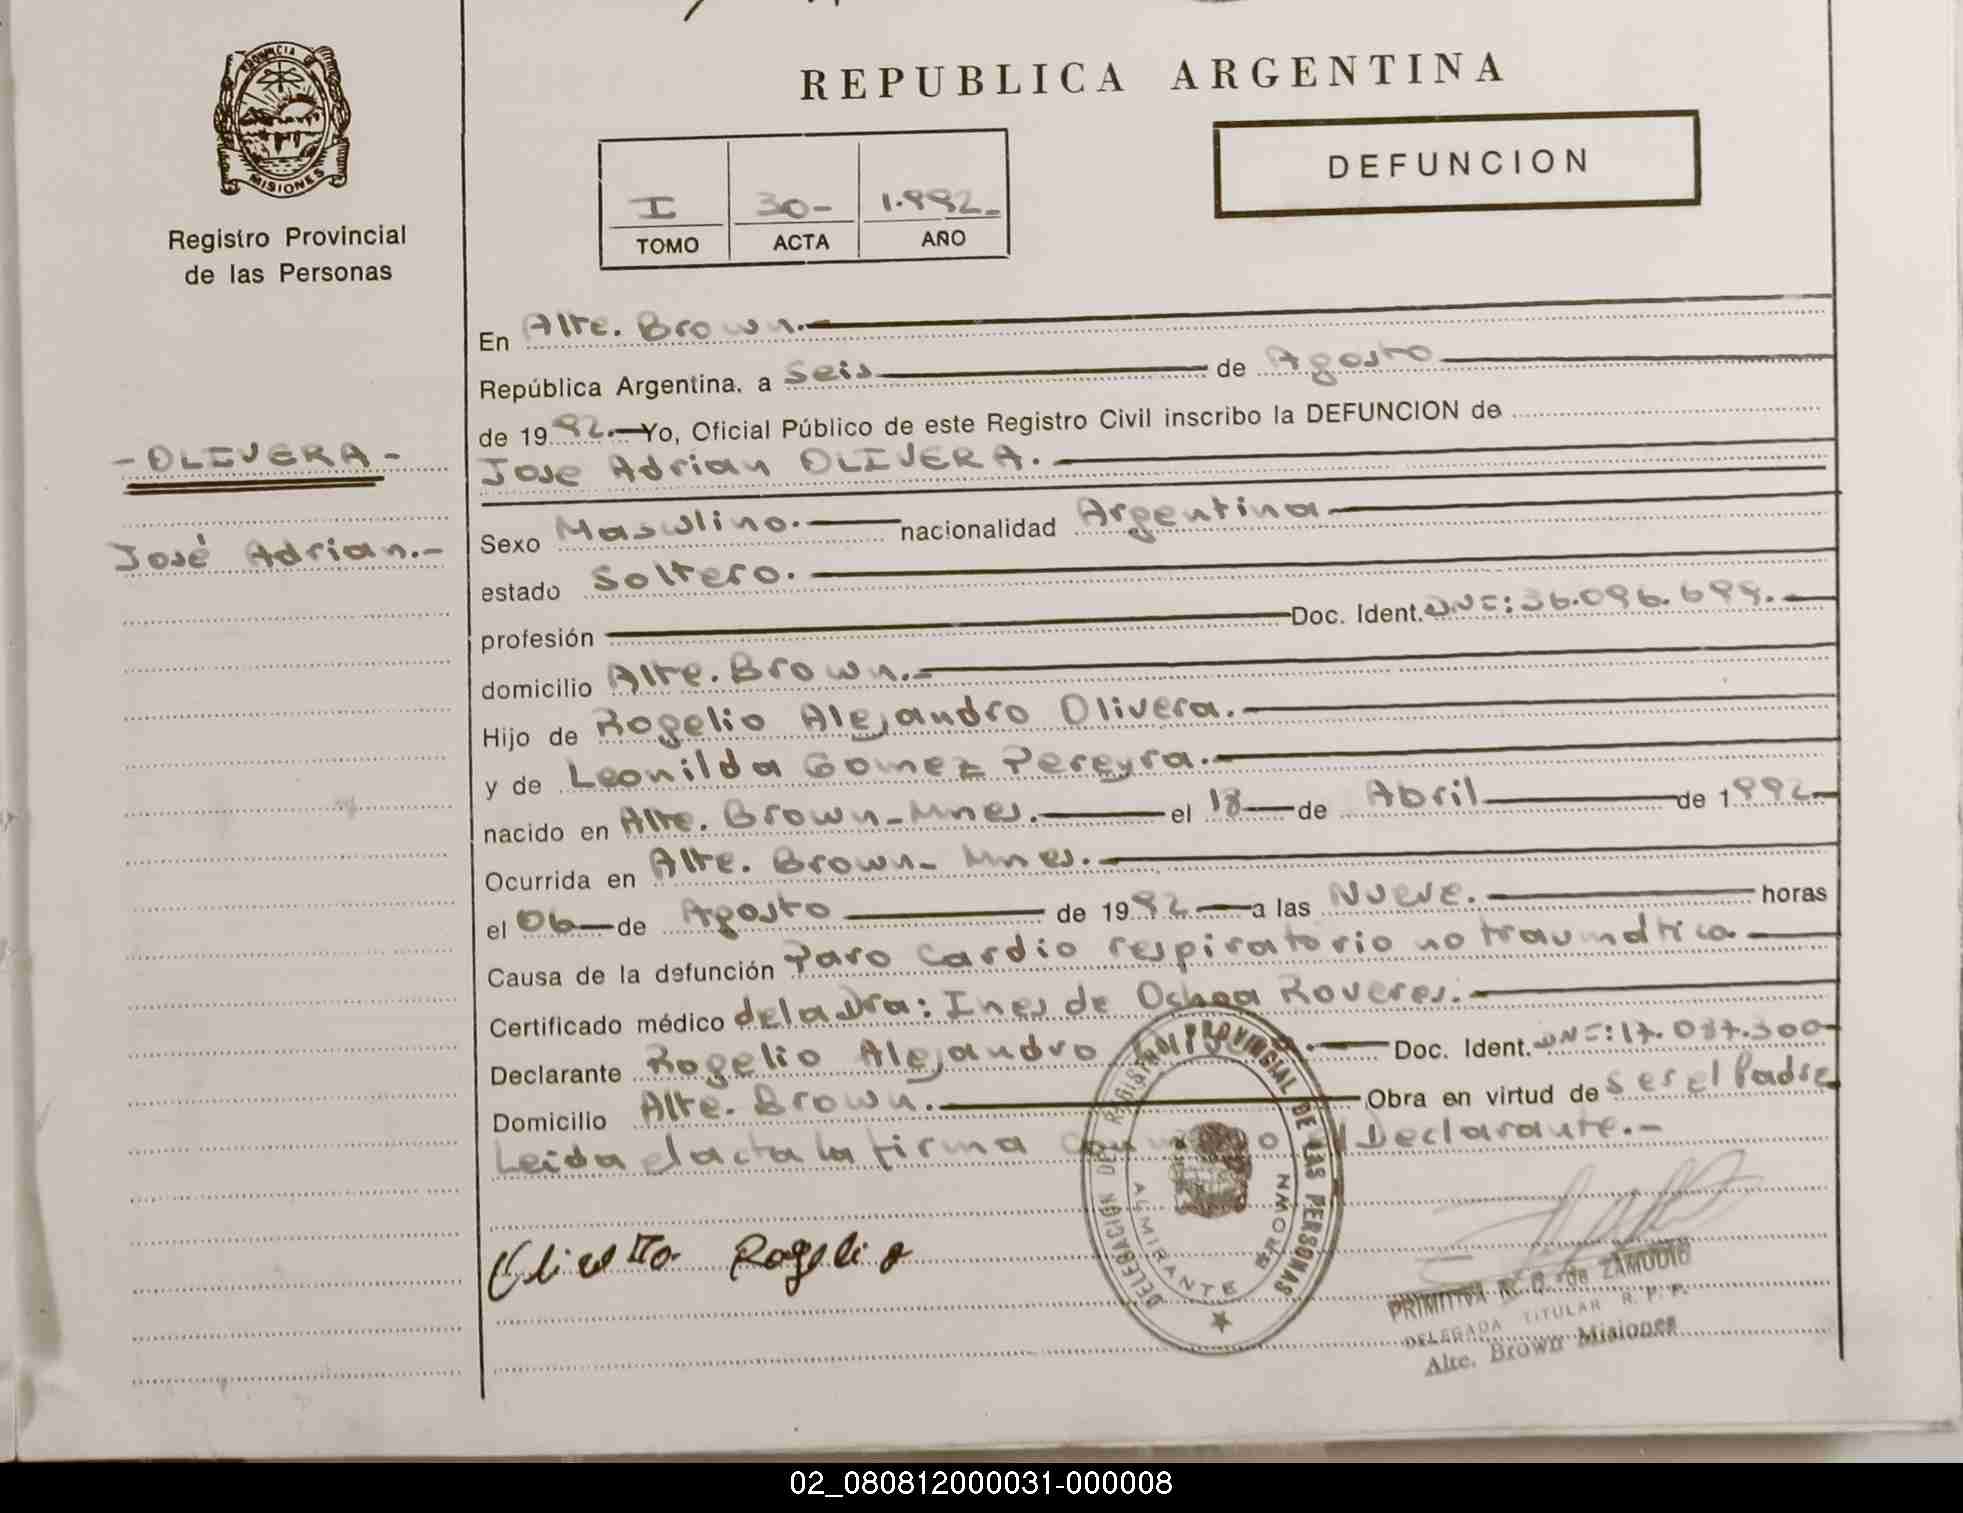 PROVINCIA DE
MISIONES
Registro Provincial
de las Personas
REPUBLICA ARGENTINA
DEFUNCION
I 30- 1.992-
TOMO ACTA AÑO
En Alte. Brown.-
República Argentina, a Seis de Agosto
de 1992.- Yo, Oficial Público de este Registro Civil inscribo la DEFUNCION de
-OLIVERA-
Jose Adrian OLIVERA.-
Sexo Masculino.- nacionalidad Argentina-
José Adrian.-
estado Soltero.
profesión Doc. Ident. DNI: 36.096.699.-
domicilio Alte. Brown.-
Hijo de Rogelio Alejandro Olivera.-
y de Leonilda Gomez Pereyra.-
nacido en Alte. Brown-Mnes.- el 18- de Abril de 1992-
Ocurrida en Alte. Brown- Mnes.-
el 06- de Agosto de 1992- a las Nueve. horas
Causa de la defunción Paro Cardio respiratorio no traumático-
Certificado médico de la Dra: Ines de Ochoa Roveres.-
Declarante Rogelio Alejandro .- Doc. Ident. DNI: 17.037.300-
Domicilio Alte. Brown.- Obra en virtud de ser el Padre
Leida el acta la firma conmigo el Declarante.-
DELEGACION DEL REGISTRO PROVINCIAL DE LAS PERSONAS
ALMIRANTE BROWN
Rogelio
PRIMITIVA de ZAMUDIO
DELEGADA TITULAR R. P. P.
Alte. Brown Misiones
02_080812000031-000008